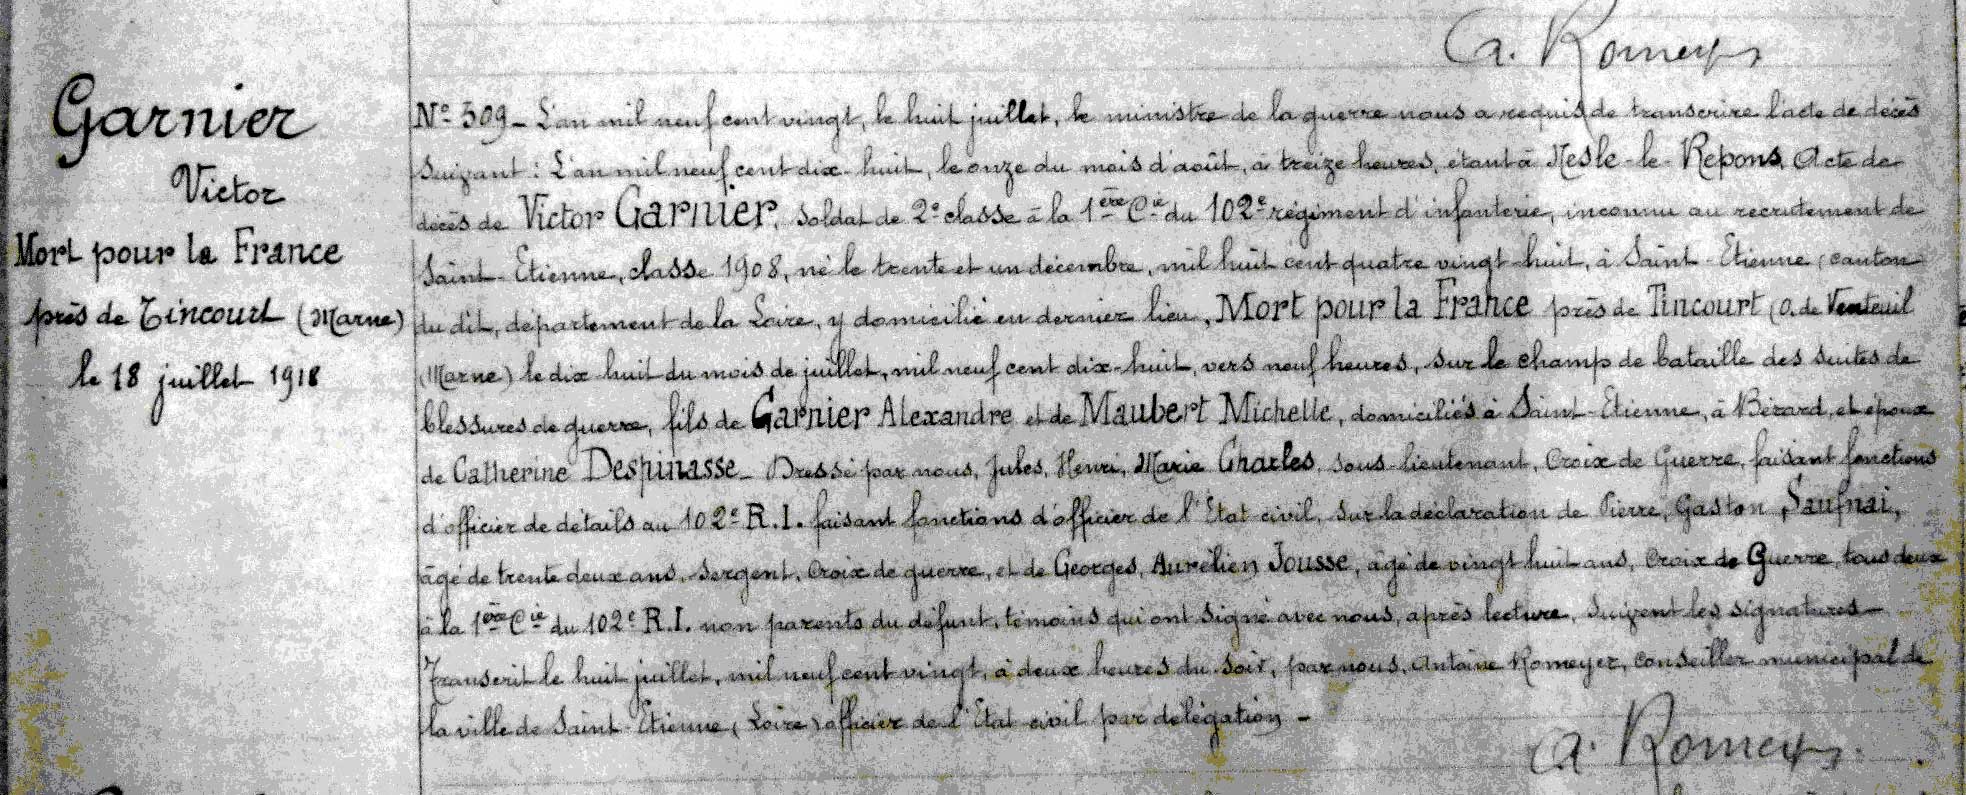 a. Romeyer
Garnier
Victor
Mort pour la France
près de Tincourt (Marne)
le 18 juillet 1918
N° 309 - L'an mil neuf cent vingt, le huit juillet, le ministre de la guerre nous a requis de transcrire l'acte de décès
suivant : L'an mil neuf cent dix-huit, le onze du mois d'août, à treize heures, étant à Nesle-le-Repons, Acte de
décès de Victor Garnier, soldat de 2e classe à la 1ère Cie du 102e régiment d'infanterie, inconnu au recrutement de
Saint-Etienne, classe 1908, né le trente et un décembre, mil huit cent quatre vingt huit, à Saint-Etienne, canton
du dit, département de la Loire, y domicilié en dernier lieu, Mort pour la France près de Tincourt (O. de Venteuil
(Marne) le dix huit du mois de juillet, mil neuf cent dix-huit, vers neuf heures, sur le champ de bataille des suites de
blessures de guerre, fils de Garnier Alexandre et de Maubert Michelle, domiciliés à Saint-Etienne, à Bérard, et époux
de Catherine Despinasse - Dressé par nous, Jules, Henri, Marie Charles, sous-lieutenant, Croix de Guerre, faisant fonctions
d'officier de détails au 102e R.I. faisant fonctions d'officier de l'Etat civil, sur la déclaration de Pierre, Gaston,
âgé de trente deux ans, sergent, Croix de guerre, et de Georges, Aurélien Jousse, âgé de vingt huit ans, Croix de Guerre, tous deux
à la 1ère Cie du 102e R.I. non parents du défunt, témoins qui ont signé avec nous, après lecture, suivent les signatures -
Transcrit le huit juillet, mil neuf cent vingt, à deux heures du soir, par nous, Antoine Romeyer, conseiller municipal de
la ville de Saint-Etienne, (Loire) officier de l'Etat civil par délégation -
a. Romeyer